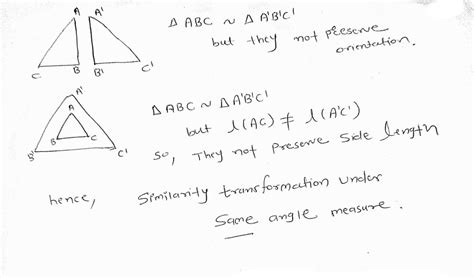 A A'
Δ ABC ~ Δ A'B'C'
but they not preserve
orientation.
C B B' C'
A'
A
B C
B' C'
Δ ABC ~ Δ A'B'C'
but l(AC) ≠ l(A'C')
so, They not preserve side length
hence, Similarity transformation under
Same angle measure.